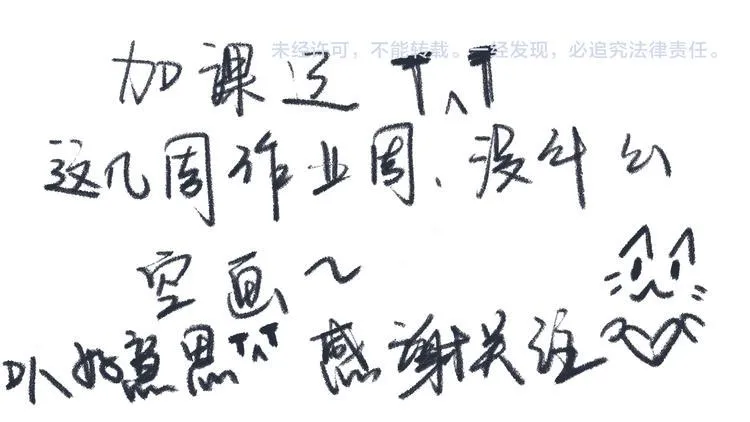 未经许可，不能转载。一经发现，必追究法律责任。
加课过 T^T
这几周作业周、没什么
空画~
意思T^T 感谢关注